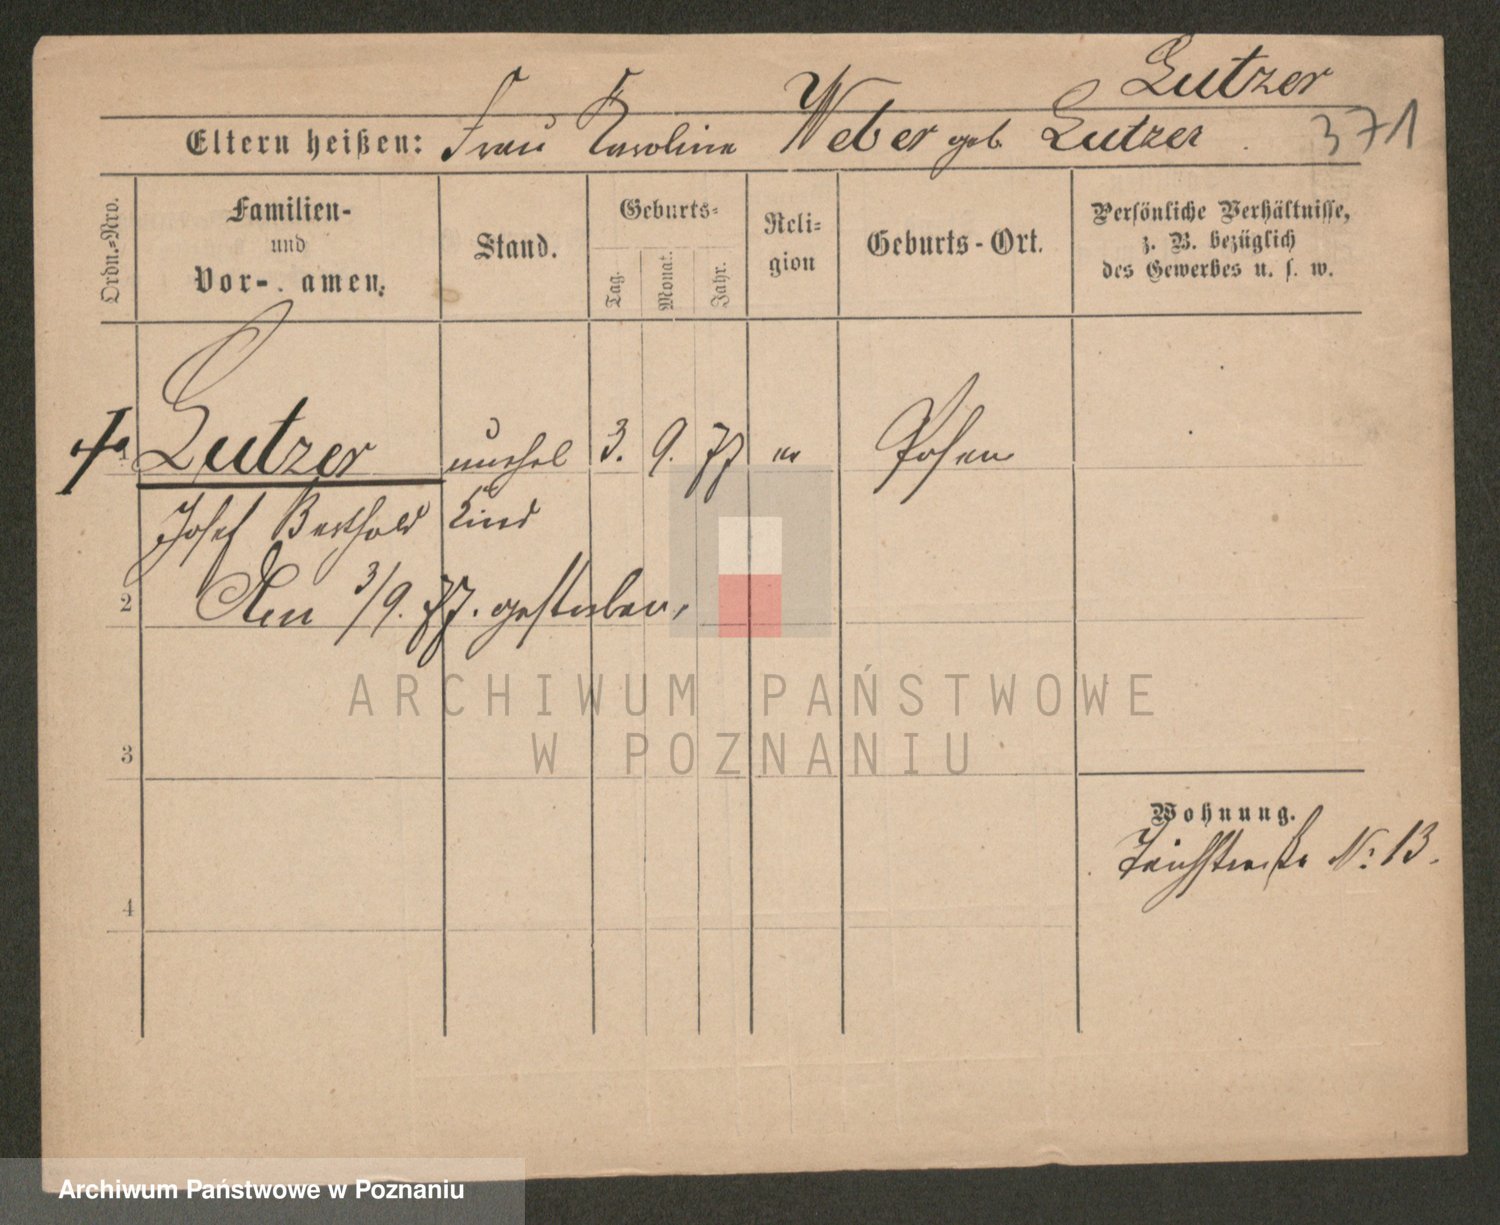 Lutzer
Eltern heißen: Frau Karoline Weber geb. Lutzer
371
Ordn.-Nro.
Familien-
und
Vor- amen.
Stand.
Geburts-
Tag. Monat. Jahr.
Reli-
gion
Geburts-Ort.
Persönliche Verhältnisse,
z. B. bezüglich
des Gewerbes u. s. w.
1 Lutzer unehel 3. 9. 77 ev Posen
Josef Berthold Kind
2 Am 3/9. 77. gestorben,
ARCHIWUM PAŃSTWOWE
W POZNANIU
3
Wohnung.
Teichstraße No: 13.
4
Archiwum Państwowe w Poznaniu